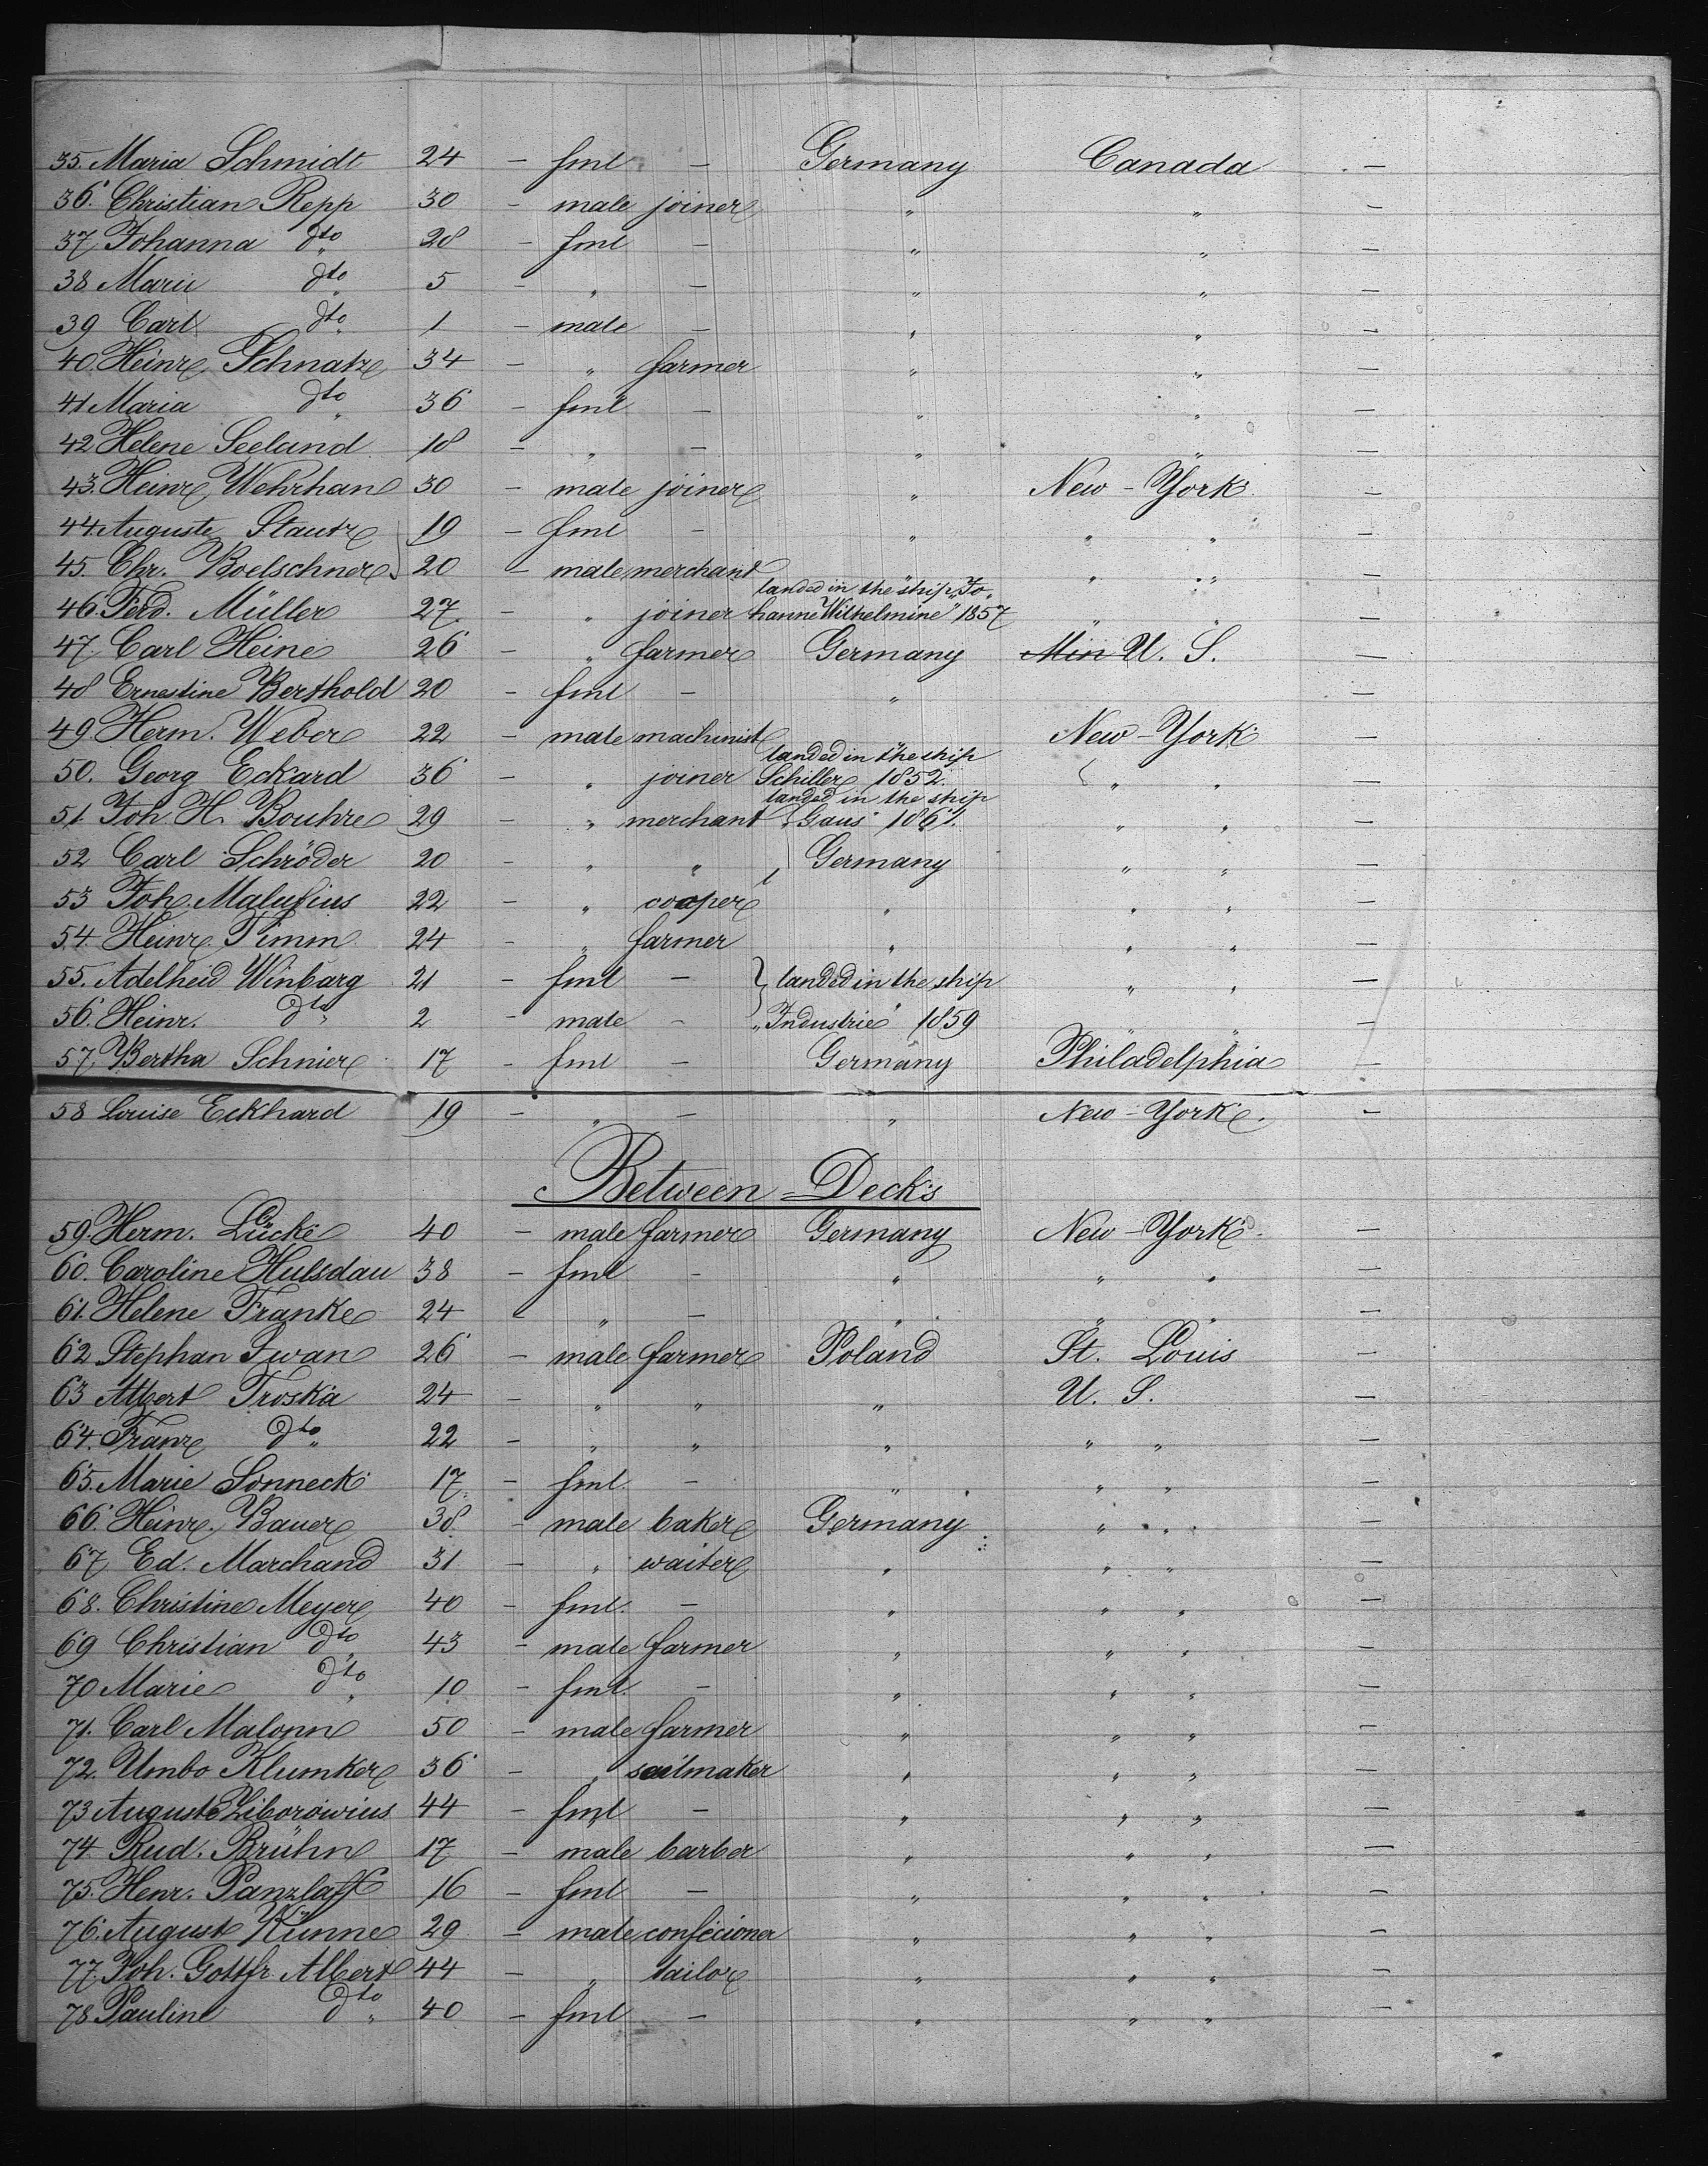 35. Maria Schmidt 24 – fml – Germany Canada –
36. Christian Repp 30 – male joiner " " –
37 Johanna dto 28 – fml – " " –
38 Marie dto 5 – " – " " –
39 Carl dto 1 – male – " " –
40. Heinr. Schnatz 34 – " farmer " " –
41 Maria dto 36 – fml – " " –
42 Helene Seeland 18 – " – " " –
43. Heinr. Wehrhan 30 – male joiner " New-York –
44. Auguste Stautz 19 – fml – " " " –
45. Chr. Boelschner 20 – male merchand " " " –
46. Ferd. Müller 27 – " joiner landed in the ship "Jo-hanne Wilhelmine" 1857 " " –
47. Carl Heine 26 – " farmer Germany Min U. S. –
48 Ernestine Berthold 20 – fml – " –
49 Herm. Weber 22 – male machinist " New-York –
50. Georg Eckard 36 – " joiner landed in the ship Schiller 1852. " " –
51. Joh. H. Bouhre 29 – " merchant landed in the ship "Gaus" 1861. " " –
52 Carl Schröder 20 – " " Germany " " –
53 Joh. Malufius 22 – " cooper " " " –
54. Heinr. Timm 24 – " farmer " " " –
55. Adelheid Winbarg 21 – fml – } landed in the ship " " –
56. Heinr. dto 2 – male – "Industrie" 1859 " " –
57. Bertha Schnier 17 – fml – Germany Philadelphia –
58 Louise Eckhard 19 – " – " New-York. –
Between-Decks
59. Herm. Lücke 40 – male farmer Germany New-York. –
60. Caroline Hulsdau 38 – fml – " " " –
61. Helene Franke 24 – " – " " " –
62 Stephan Iwan 26 – male farmer Poland St. Louis –
63 Albert Troska 24 – " " " U. S. –
64. Franz dto 22 – " " " " " –
65. Marie Sonneck 17. – fml. – " " " –
66. Heinr. Bauer 38. – male baker Germany " " –
67 Ed. Marchand 31 – " waiter " " " –
68. Christine Meyer 40 – fml. – " " " –
69 Christian dto 43 – male farmer " " " –
70 Marie dto 10 – fml. – " " " –
71. Carl Malonn 50 – male farmer " " " –
72. Umbo Klumker 36 – " sailmaker " " " –
73 Auguste Ziborowius 44 – fml – " " " –
74. Rud. Brühn 17 – male barber " " " –
75. Henr. Panzlaff 16 – fml – " " " –
76. August Künne 29 – male confecioner " " " –
77. Joh. Gottfr. Albert 44 – " tailor " " " –
78 Pauline dto 40 – fml – " " " –